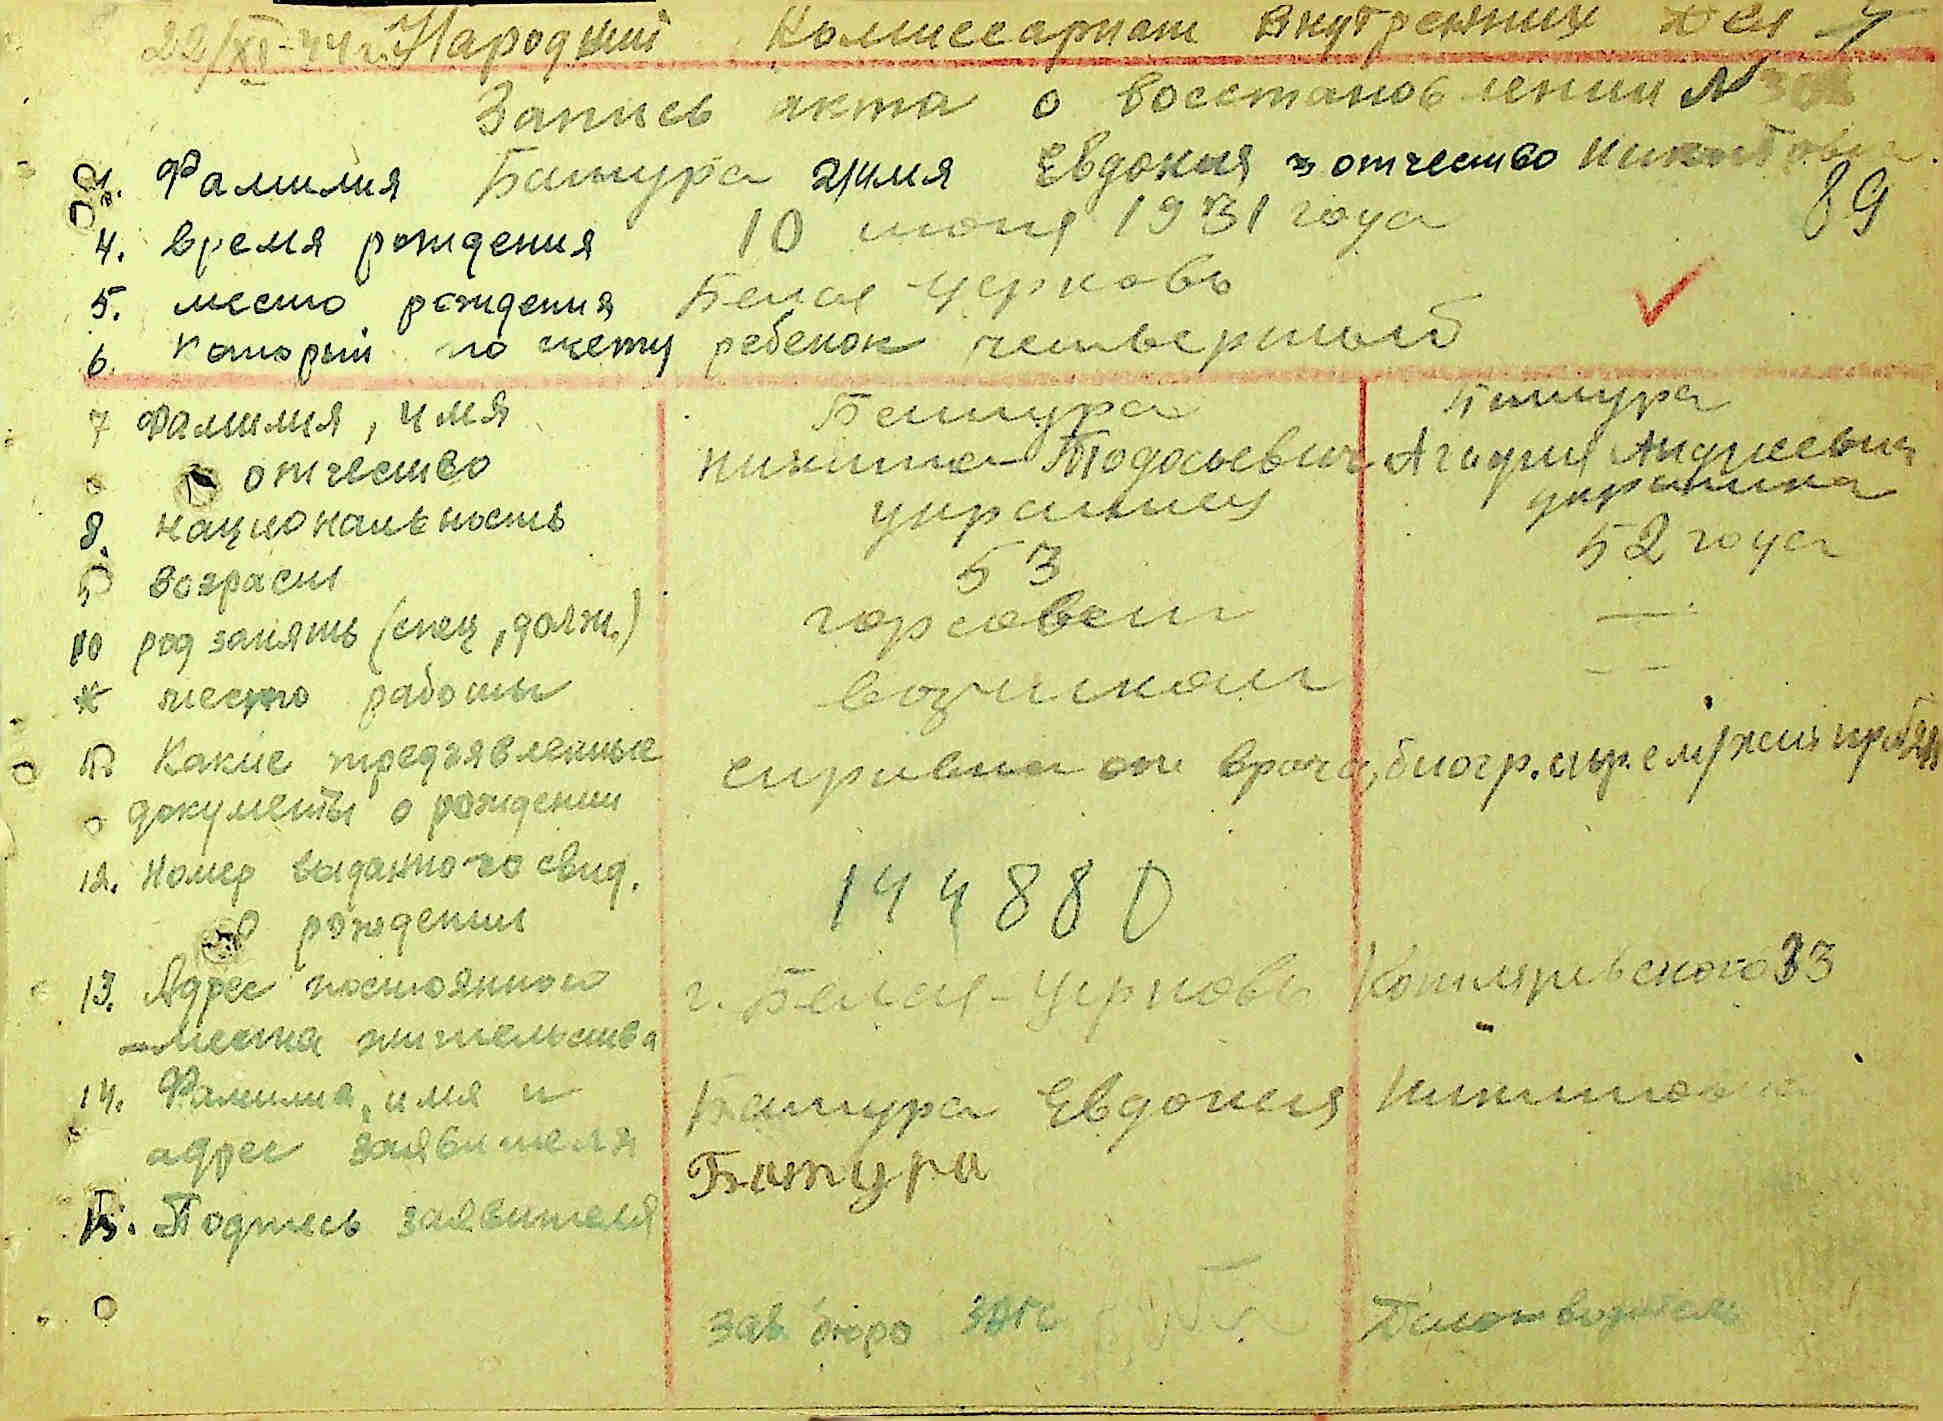 22/XI-44 г. Народный Комиссариат Внутренних Дел
Запись акта о восстановлении №
1. Фамилия Батура 2 имя Евдокия 3 отчество Никитовна
89
4. время рождения 10 июня 1931 года
5. место рождения Белая Церковь
6. который по счету ребенок четвертый
7 Фамилия, имя Батура Батура
отчество Никита Тодосьевич Агафия Андреевна
8. национальность украинец украинка
9 возраст 53 52 года
10 род занять (спец, долж.) горсовет —
* место работы возчиком —
11. Какие предъявленные справка от врача, биогр. спр. с м/жит
документы о рождении
12. Номер выданного свид. 144880
о рождении
13. Адрес постоянного г. Белая-Церковь Котляревского 33
места жительства
14. Фамилия, имя и Батура Евдокия Никитовна
адрес заявителя
15. Подпись заявителя Батура
Зав. бюро ЗАГС Делопроизводитель